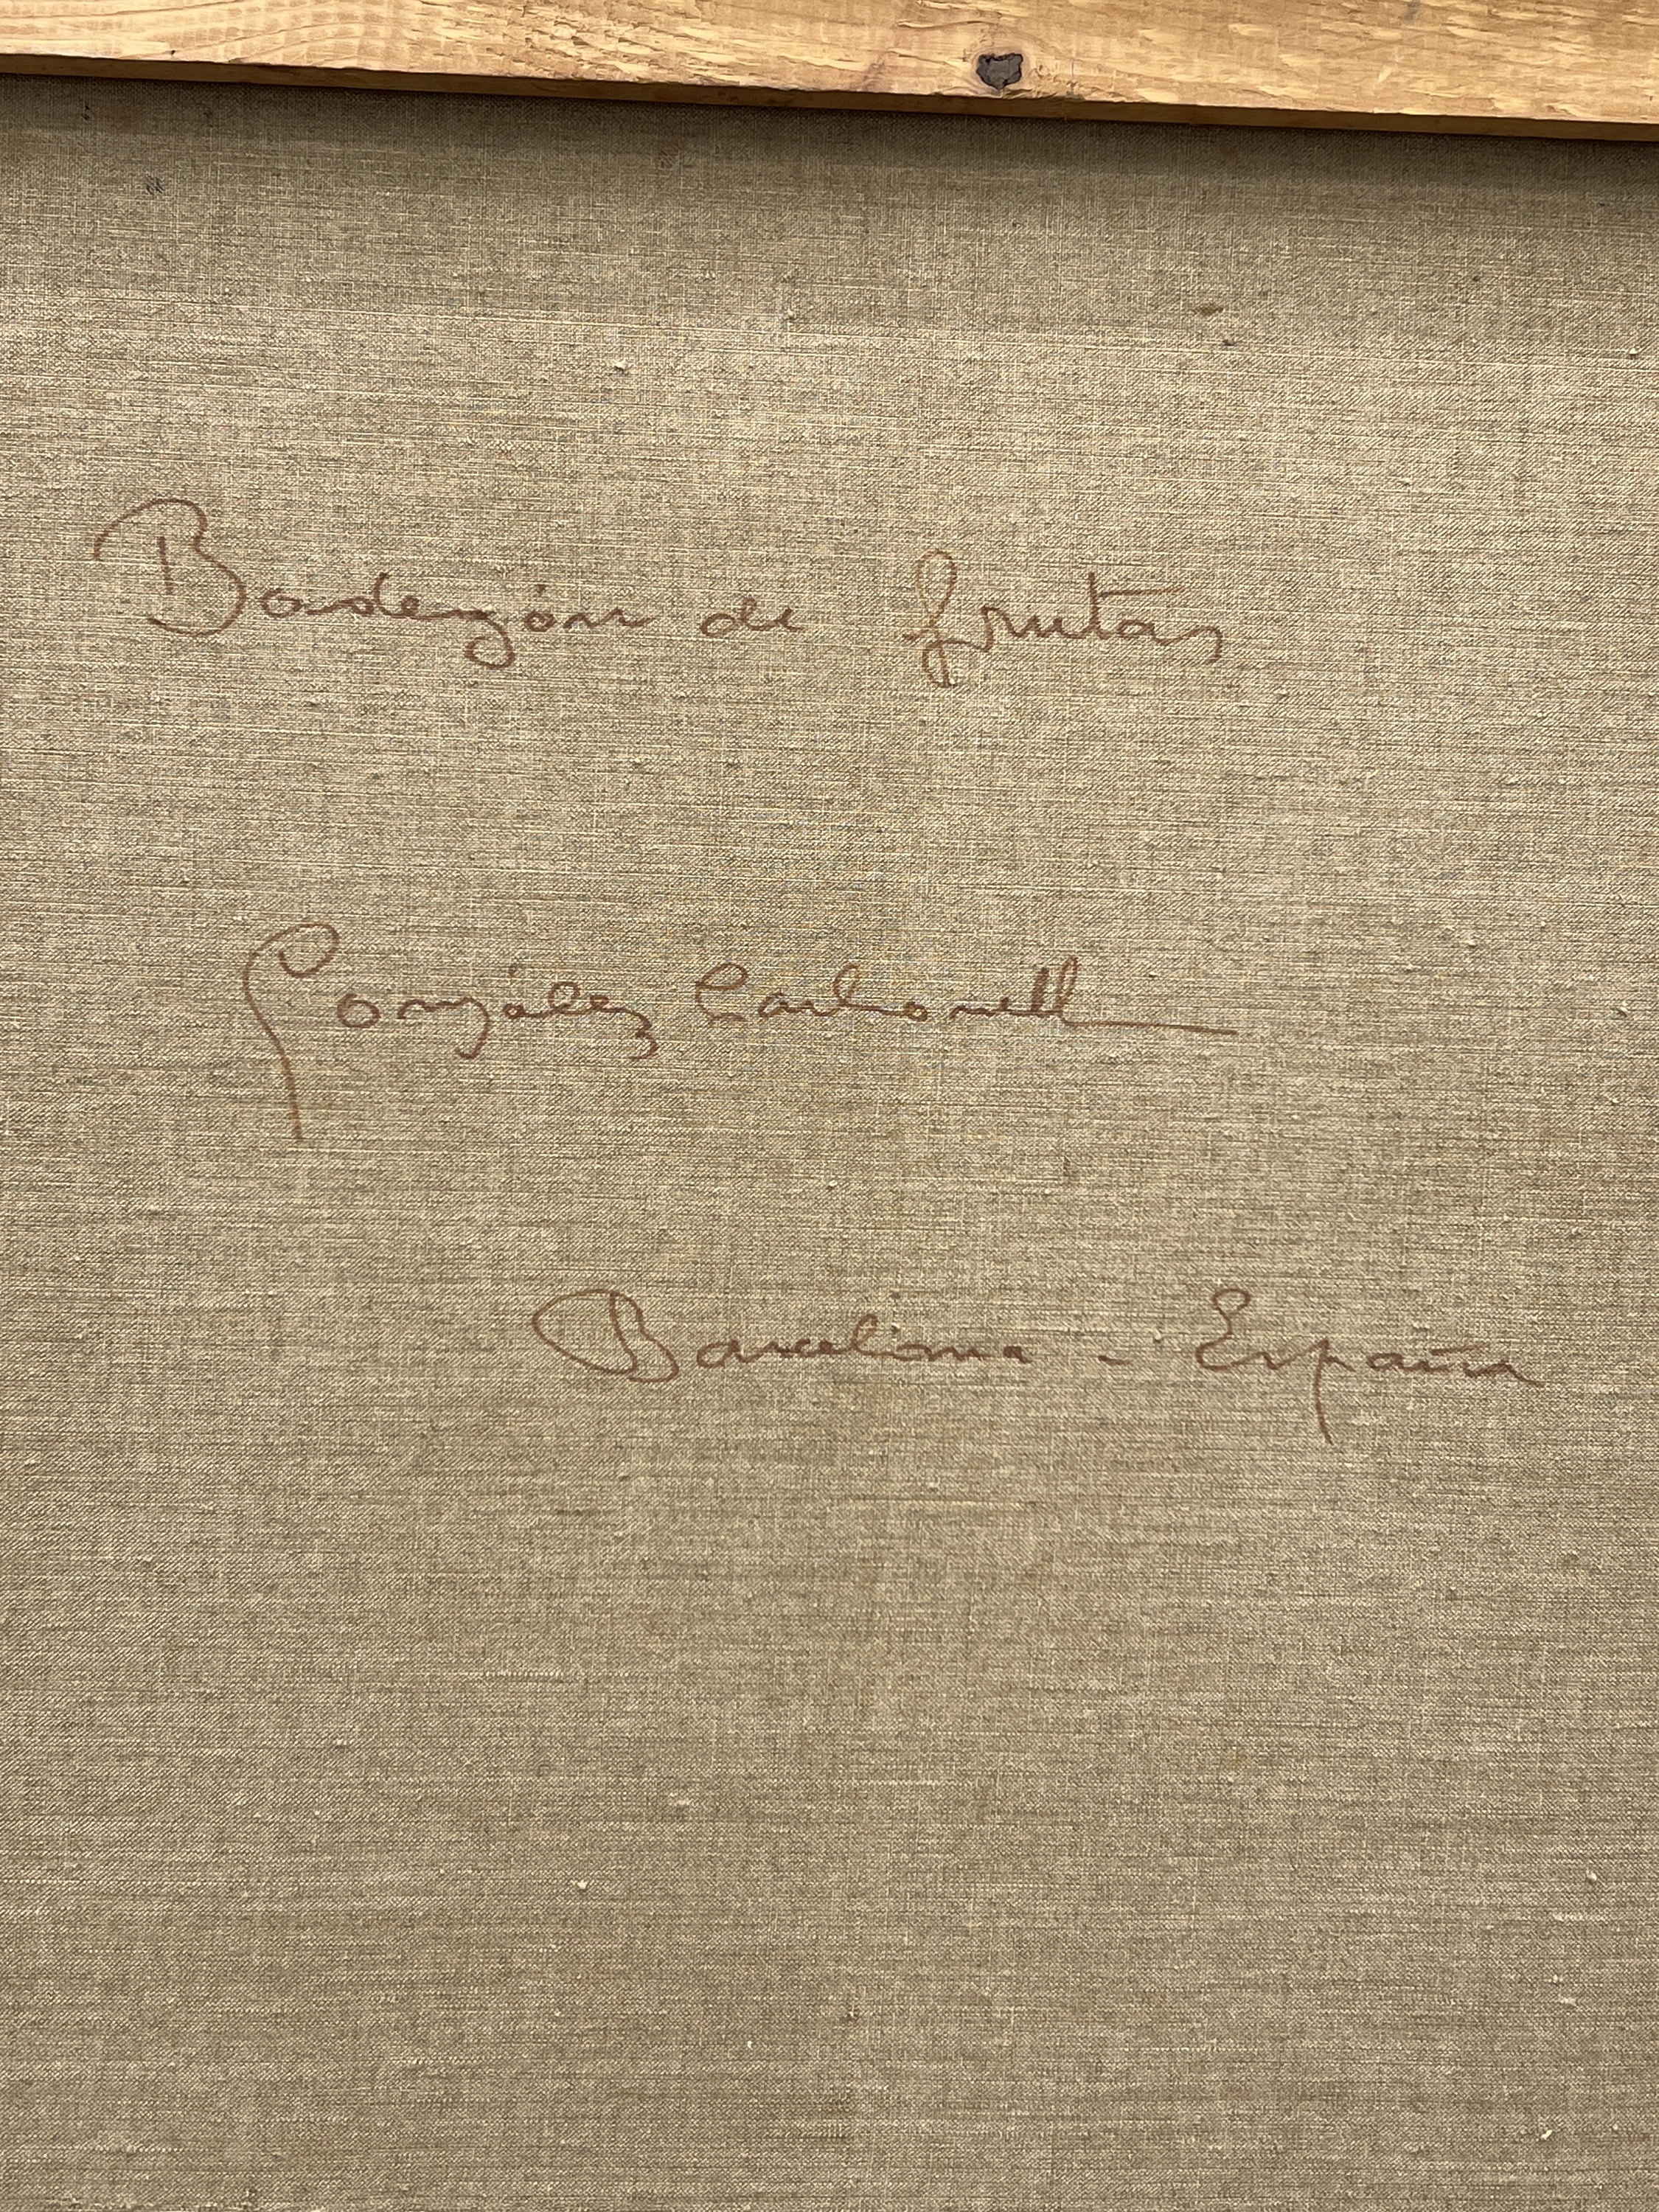 Bodegón de frutas
González Carbonell
Barcelona - España